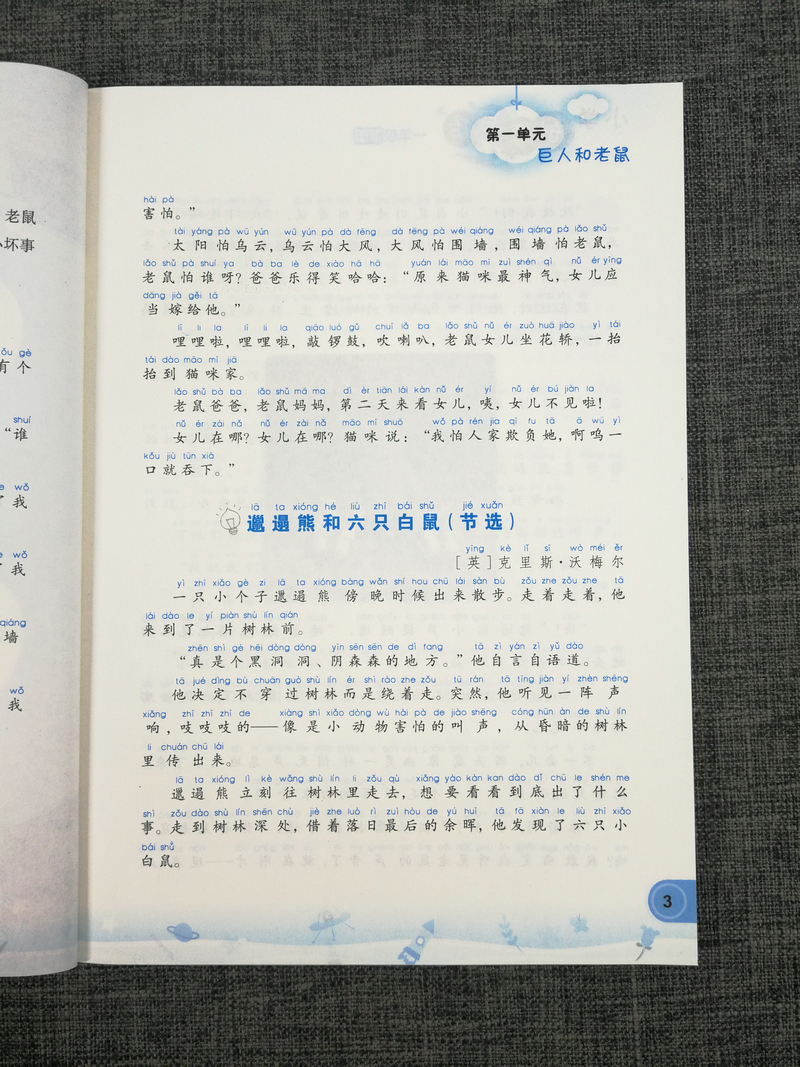 老鼠
坏事
ǒu gè
有个
shuí
“谁
e wǒ
了我
e wǒ
了我
qiáng
墙
wǒ
我
第一单元
巨人和老鼠
hài pà
害怕。”
tài yáng pà wū yún wū yún pà dà fēng dà fēng pà wéi qiáng wéi qiáng pà lǎo shǔ
太阳怕乌云，乌云怕大风，大风怕围墙，围墙怕老鼠，
lǎo shǔ pà shuí ya bà ba lè de xiào hā hā yuán lái māo mī zuì shén qì nǚ ér yīng
老鼠怕谁呀？爸爸乐得笑哈哈：“原来猫咪最神气，女儿应
dāng jià gěi tā
当嫁给他。”
lī li la lī li la qiāo luó gǔ chuī lǎ ba lǎo shǔ nǚ ér zuò huā jiào yì tái
哩哩啦，哩哩啦，敲锣鼓，吹喇叭，老鼠女儿坐花轿，一抬
tái dào māo mī jiā
抬到猫咪家。
lǎo shǔ bà ba lǎo shǔ mā ma dì èr tiān lái kàn nǚ ér yí nǚ ér bú jiàn la
老鼠爸爸，老鼠妈妈，第二天来看女儿，咦，女儿不见啦！
nǚ ér zài nǎ nǚ ér zài nǎ māo mī shuō wǒ pà rén jia qī fu tā ā wū yì
女儿在哪？女儿在哪？猫咪说：“我怕人家欺负她，啊呜一
kǒu jiù tūn xià
口就吞下。”
lā ta xióng hé liù zhī bái shǔ jié xuǎn
邋遢熊和六只白鼠（节选）
yīng kè lǐ sī wò méi ěr
［英］克里斯·沃梅尔
yì zhī xiǎo gè zi lā ta xióng bàng wǎn shí hou chū lái sàn bù zǒu zhe zǒu zhe tā
一只小个子邋遢熊傍晚时候出来散步。走着走着，他
lái dào le yí piàn shù lín qián
来到了一片树林前。
zhēn shì gè hēi dòng dòng yīn sēn sēn de dì fang tā zì yán zì yǔ dào
“真是个黑洞洞、阴森森的地方。”他自言自语道。
tā jué dìng bù chuān guò shù lín ér shì rào zhe zǒu tū rán tā tīng jiàn yí zhèn shēng
他决定不穿过树林而是绕着走。突然，他听见一阵声
xiǎng zhī zhī zhī de xiàng shì xiǎo dòng wù hài pà de jiào shēng cóng hūn àn de shù lín
响，吱吱吱的——像是小动物害怕的叫声，从昏暗的树林
li chuán chū lái
里传出来。
lā ta xióng lì kè wǎng shù lín li zǒu qù xiǎng yào kàn kan dào dǐ chū le shén me
邋遢熊立刻往树林里走去，想要看看到底出了什么
shì zǒu dào shù lín shēn chù jiè zhe luò rì zuì hòu de yú huī tā fā xiàn le liù zhī xiǎo
事。走到树林深处，借着落日最后的余晖，他发现了六只小
bái shǔ
白鼠。
3